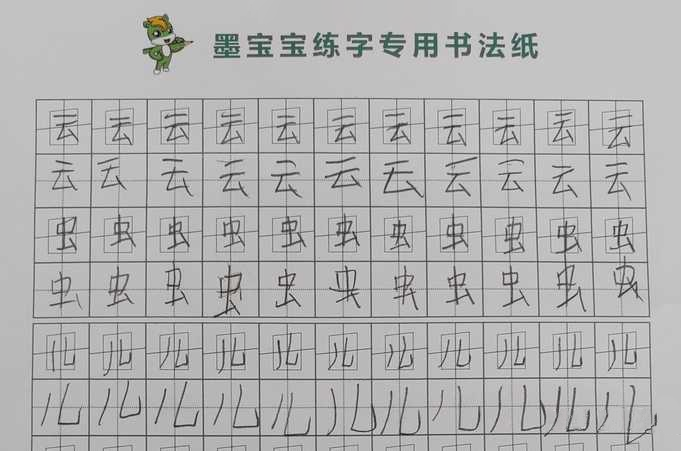 墨宝宝练字专用书法纸
云云云云云云云云云云云
云云云云云云云云云云云
虫虫虫虫虫虫虫虫虫虫虫
虫虫虫虫虫虫虫虫虫虫虫
儿儿儿儿儿儿儿儿儿儿儿
儿儿儿儿儿儿儿儿儿儿儿